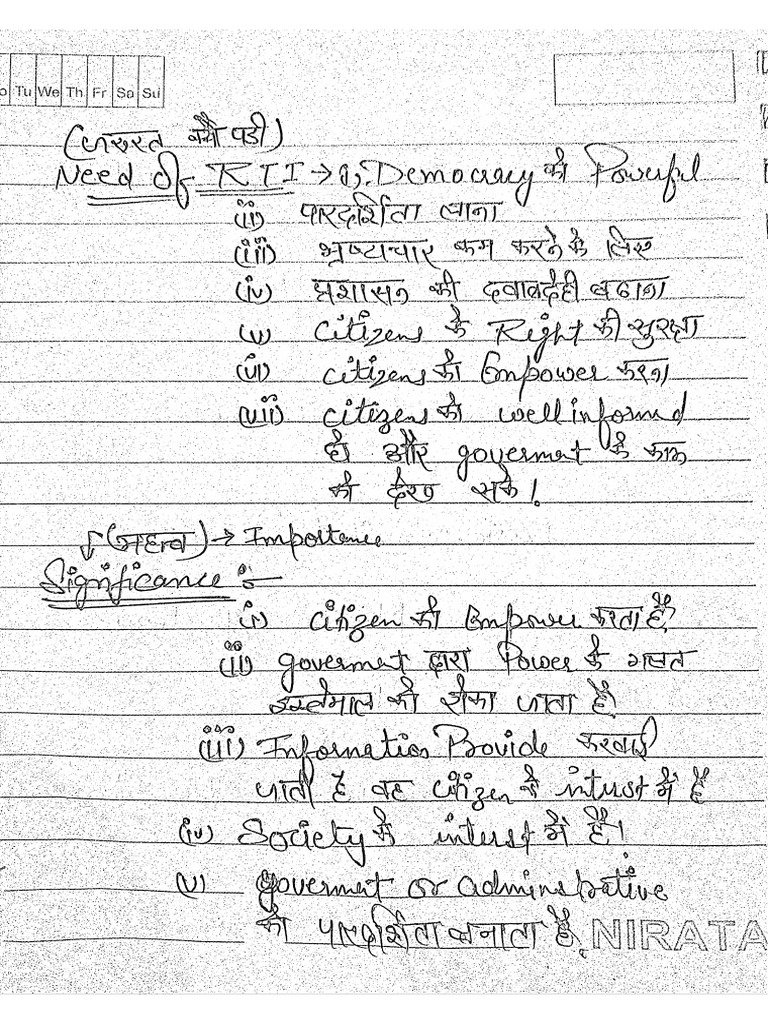 o Tu We Th Fr Sa Su
(जरुरत क्यों पडी)
Need Of RTI → i). Democracy को Powerful
(ii) पारदर्शिता लाना
(iii) भ्रष्टाचार कम करने के लिए
(iv) प्रशासन की जवाबदेही बढाना
(v) citizens के Right की सुरक्षा
(vi) citizens को Empower करना
(vii) citizens को well informed
हो और goverment के काम
को देख सके।
↓ (महत्व) → Importence
Significance :-
(i) citizen को Empower करता है।
(ii) goverment द्वारा Power के गलत
इस्तेमाल को रोका जाता है।
(iii) Information Provide करवाई
जाती है वह citizen के interst में है
(iv) Society के interst में है।
(v) Goverment or adminstrative
को पारदर्शिता बनाता है।
NIRATA